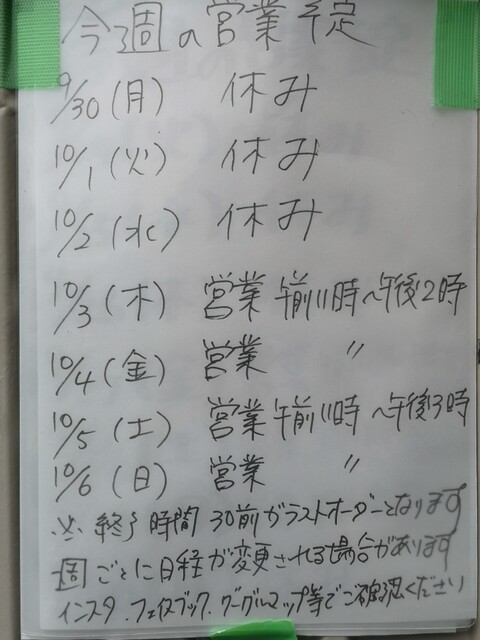 今週の営業予定
9/30(月) 休み
10/1(火) 休み
10/2(水) 休み
10/3(木) 営業 午前11時~午後2時
10/4(金) 営業 〃
10/5(土) 営業 午前11時~午後3時
10/6(日) 営業 〃
※ 終了時間30前がラストオーダーとなります
週ごとに日経が変更される場合があります
インスタ.フェイスブック.グーグルマップ等でご確認ください